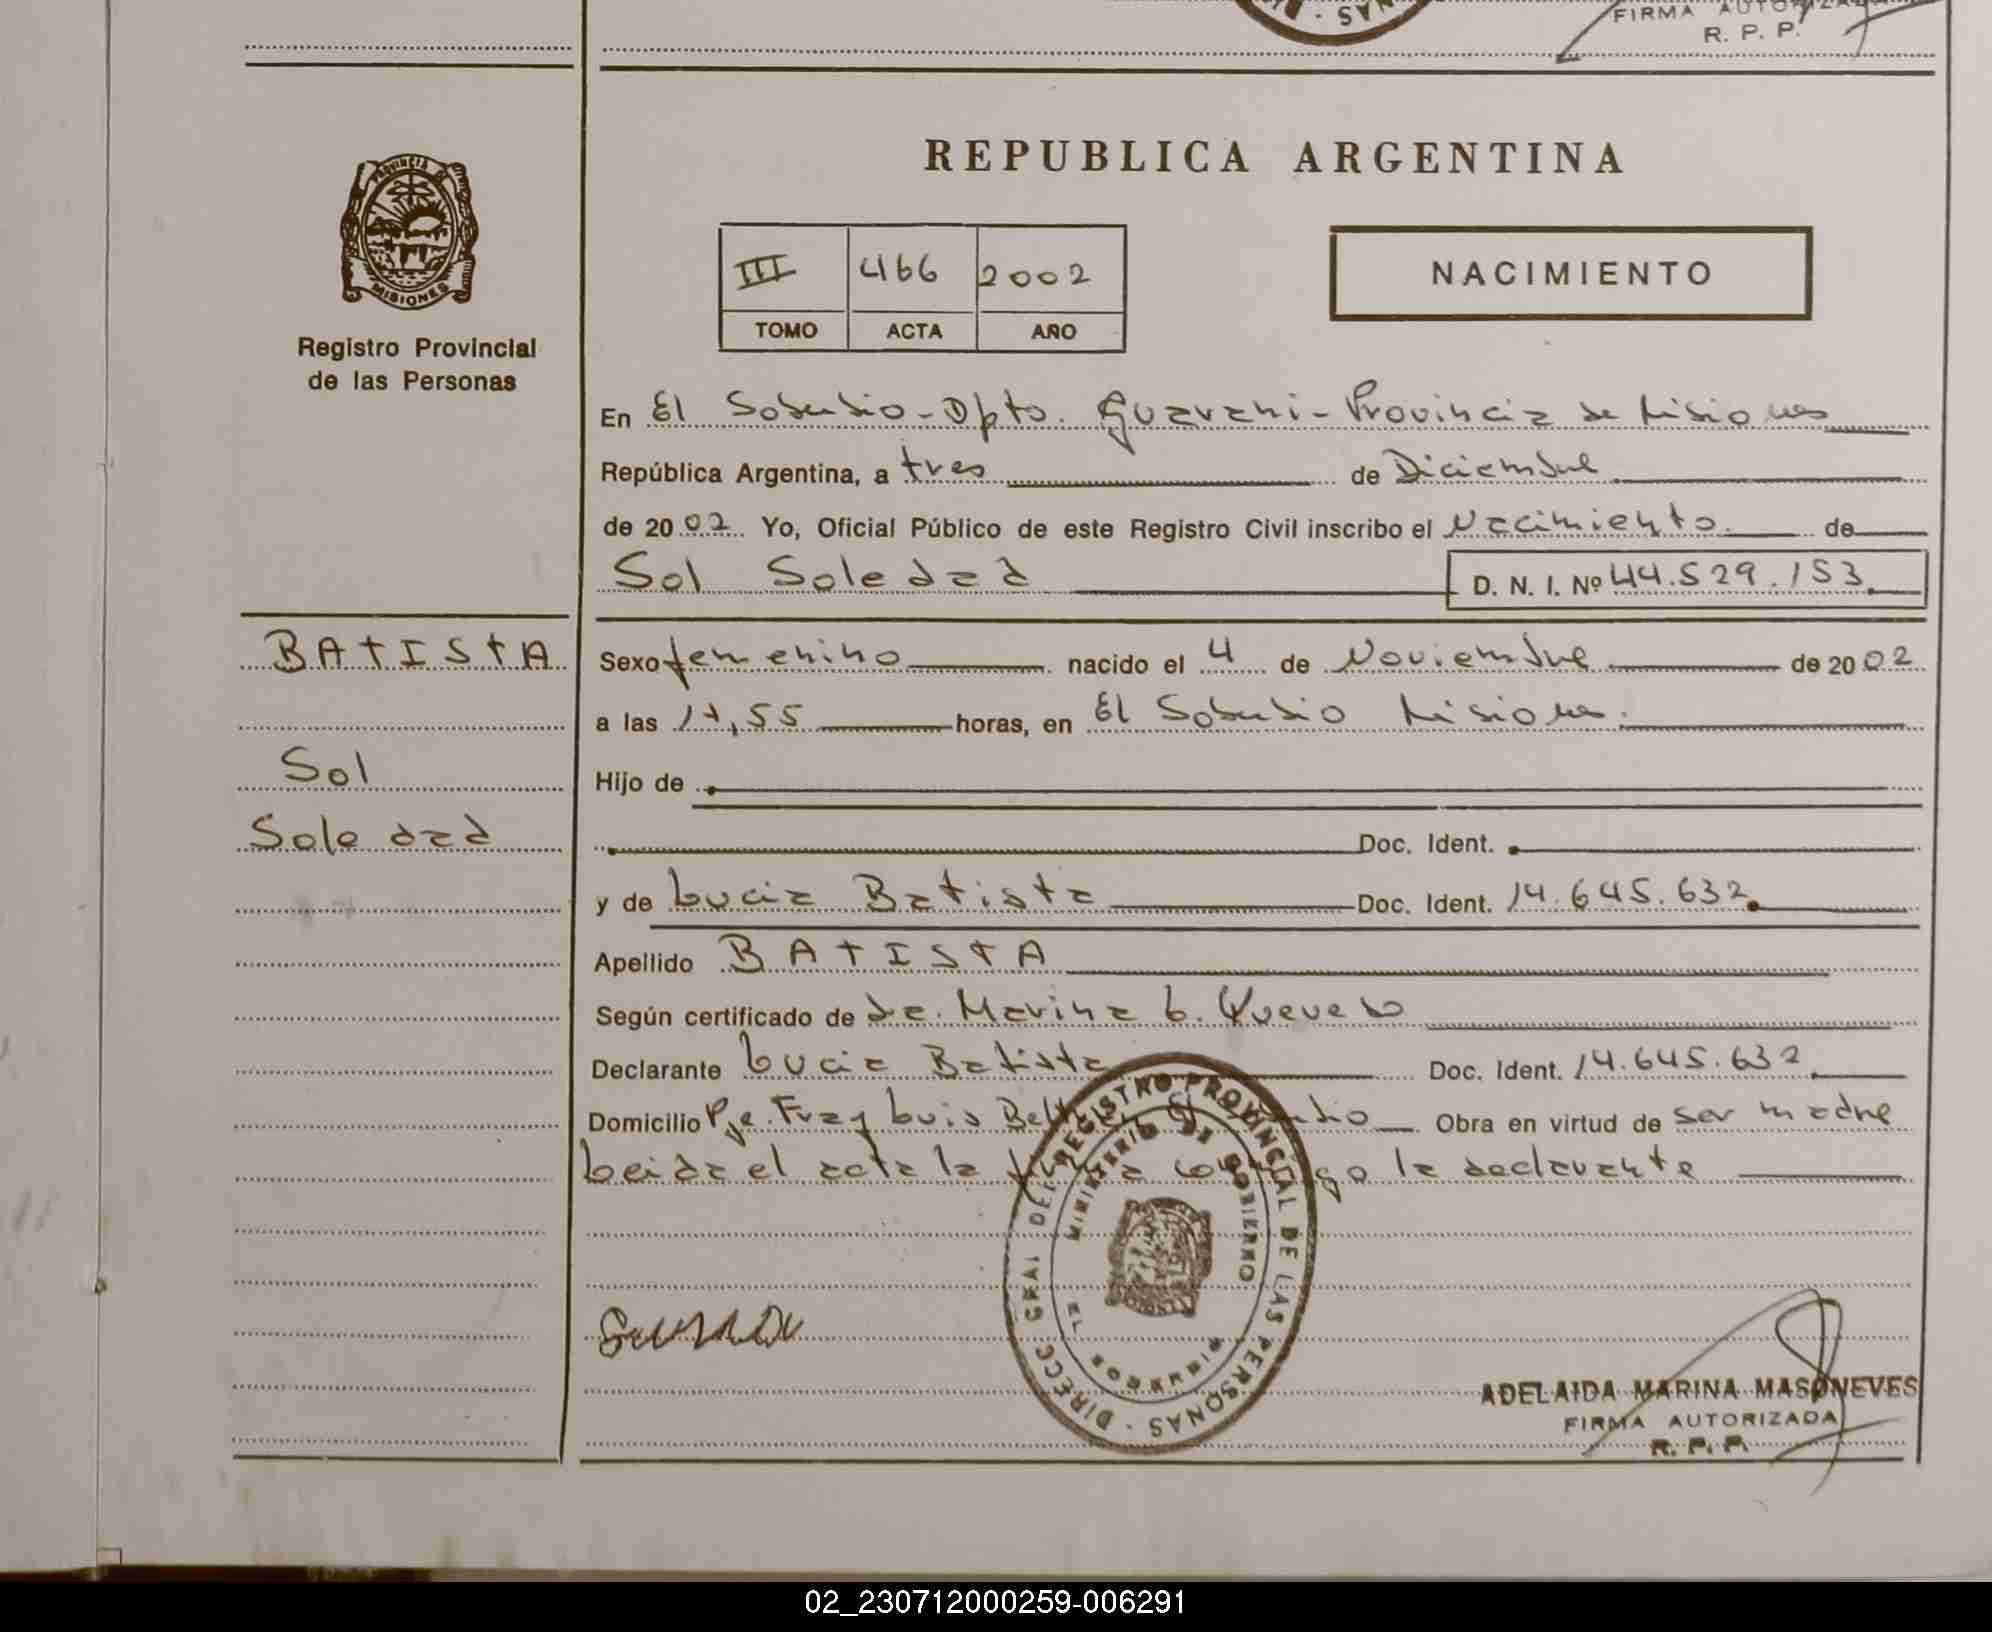 FIRMA AUTORIZADA
R. P. P.
PROVINCIA DE
MISIONES
Registro Provincial
de las Personas
REPUBLICA ARGENTINA
III 466 2002
TOMO ACTA AÑO
NACIMIENTO
En El Soberbio - Dpto. Guarani - Provincia de Misiones
República Argentina, a tres de Diciembre
de 2002 Yo, Oficial Público de este Registro Civil inscribo el Nacimiento. de
Sol Soledad D. N. I. Nº 44.529.153
BATISTA
Sol
Soledad
Sexo femenino nacido el 4 de Noviembre de 2002
a las 17,55 horas, en El Soberbio Misiones.
Hijo de
Doc. Ident.
y de Lucia Batista Doc. Ident. 14.645.632
Apellido BATISTA
Según certificado de da. Marina L. Quevedo
Declarante Lucia Batista Doc. Ident. 14.645.632
Domicilio Pje. Fray Luis Beltran El Soberbio Obra en virtud de ser madre
Leida el acta la firma conmigo la declarante
DIRECC GRAL DEL REGISTRO PROVINCIAL DE LAS PERSONAS
MINISTERIO DE GOBIERNO
EL SOBERBIO
ADELAIDA MARINA MASONEVES
FIRMA AUTORIZADA
R. P. P.
02_230712000259-006291